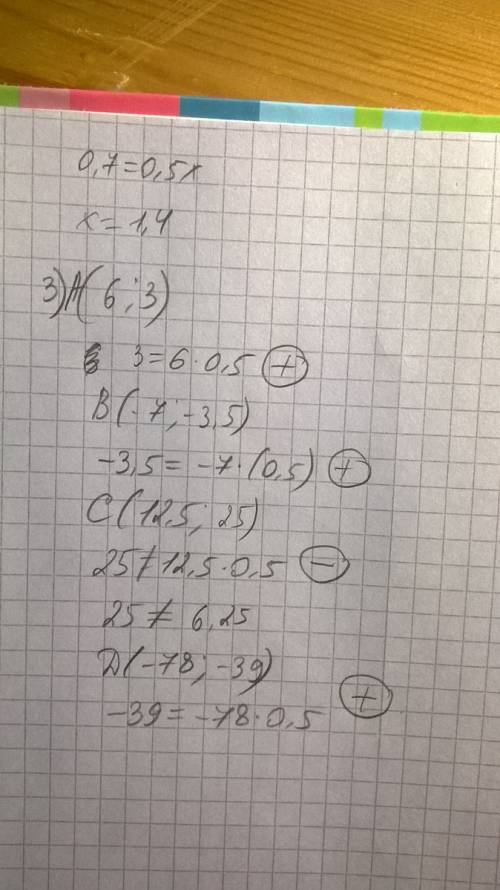 0,7=0,5x
x=1,4
3) A(6;3)
3=6·0,5 (+)
B(-7;-3,5)
-3,5=-7·(0,5) (+)
C(12,5;25)
25≠12,5·0,5 (−)
25≠6,25
D(-78;-39)
-39=-78·0,5 (+)